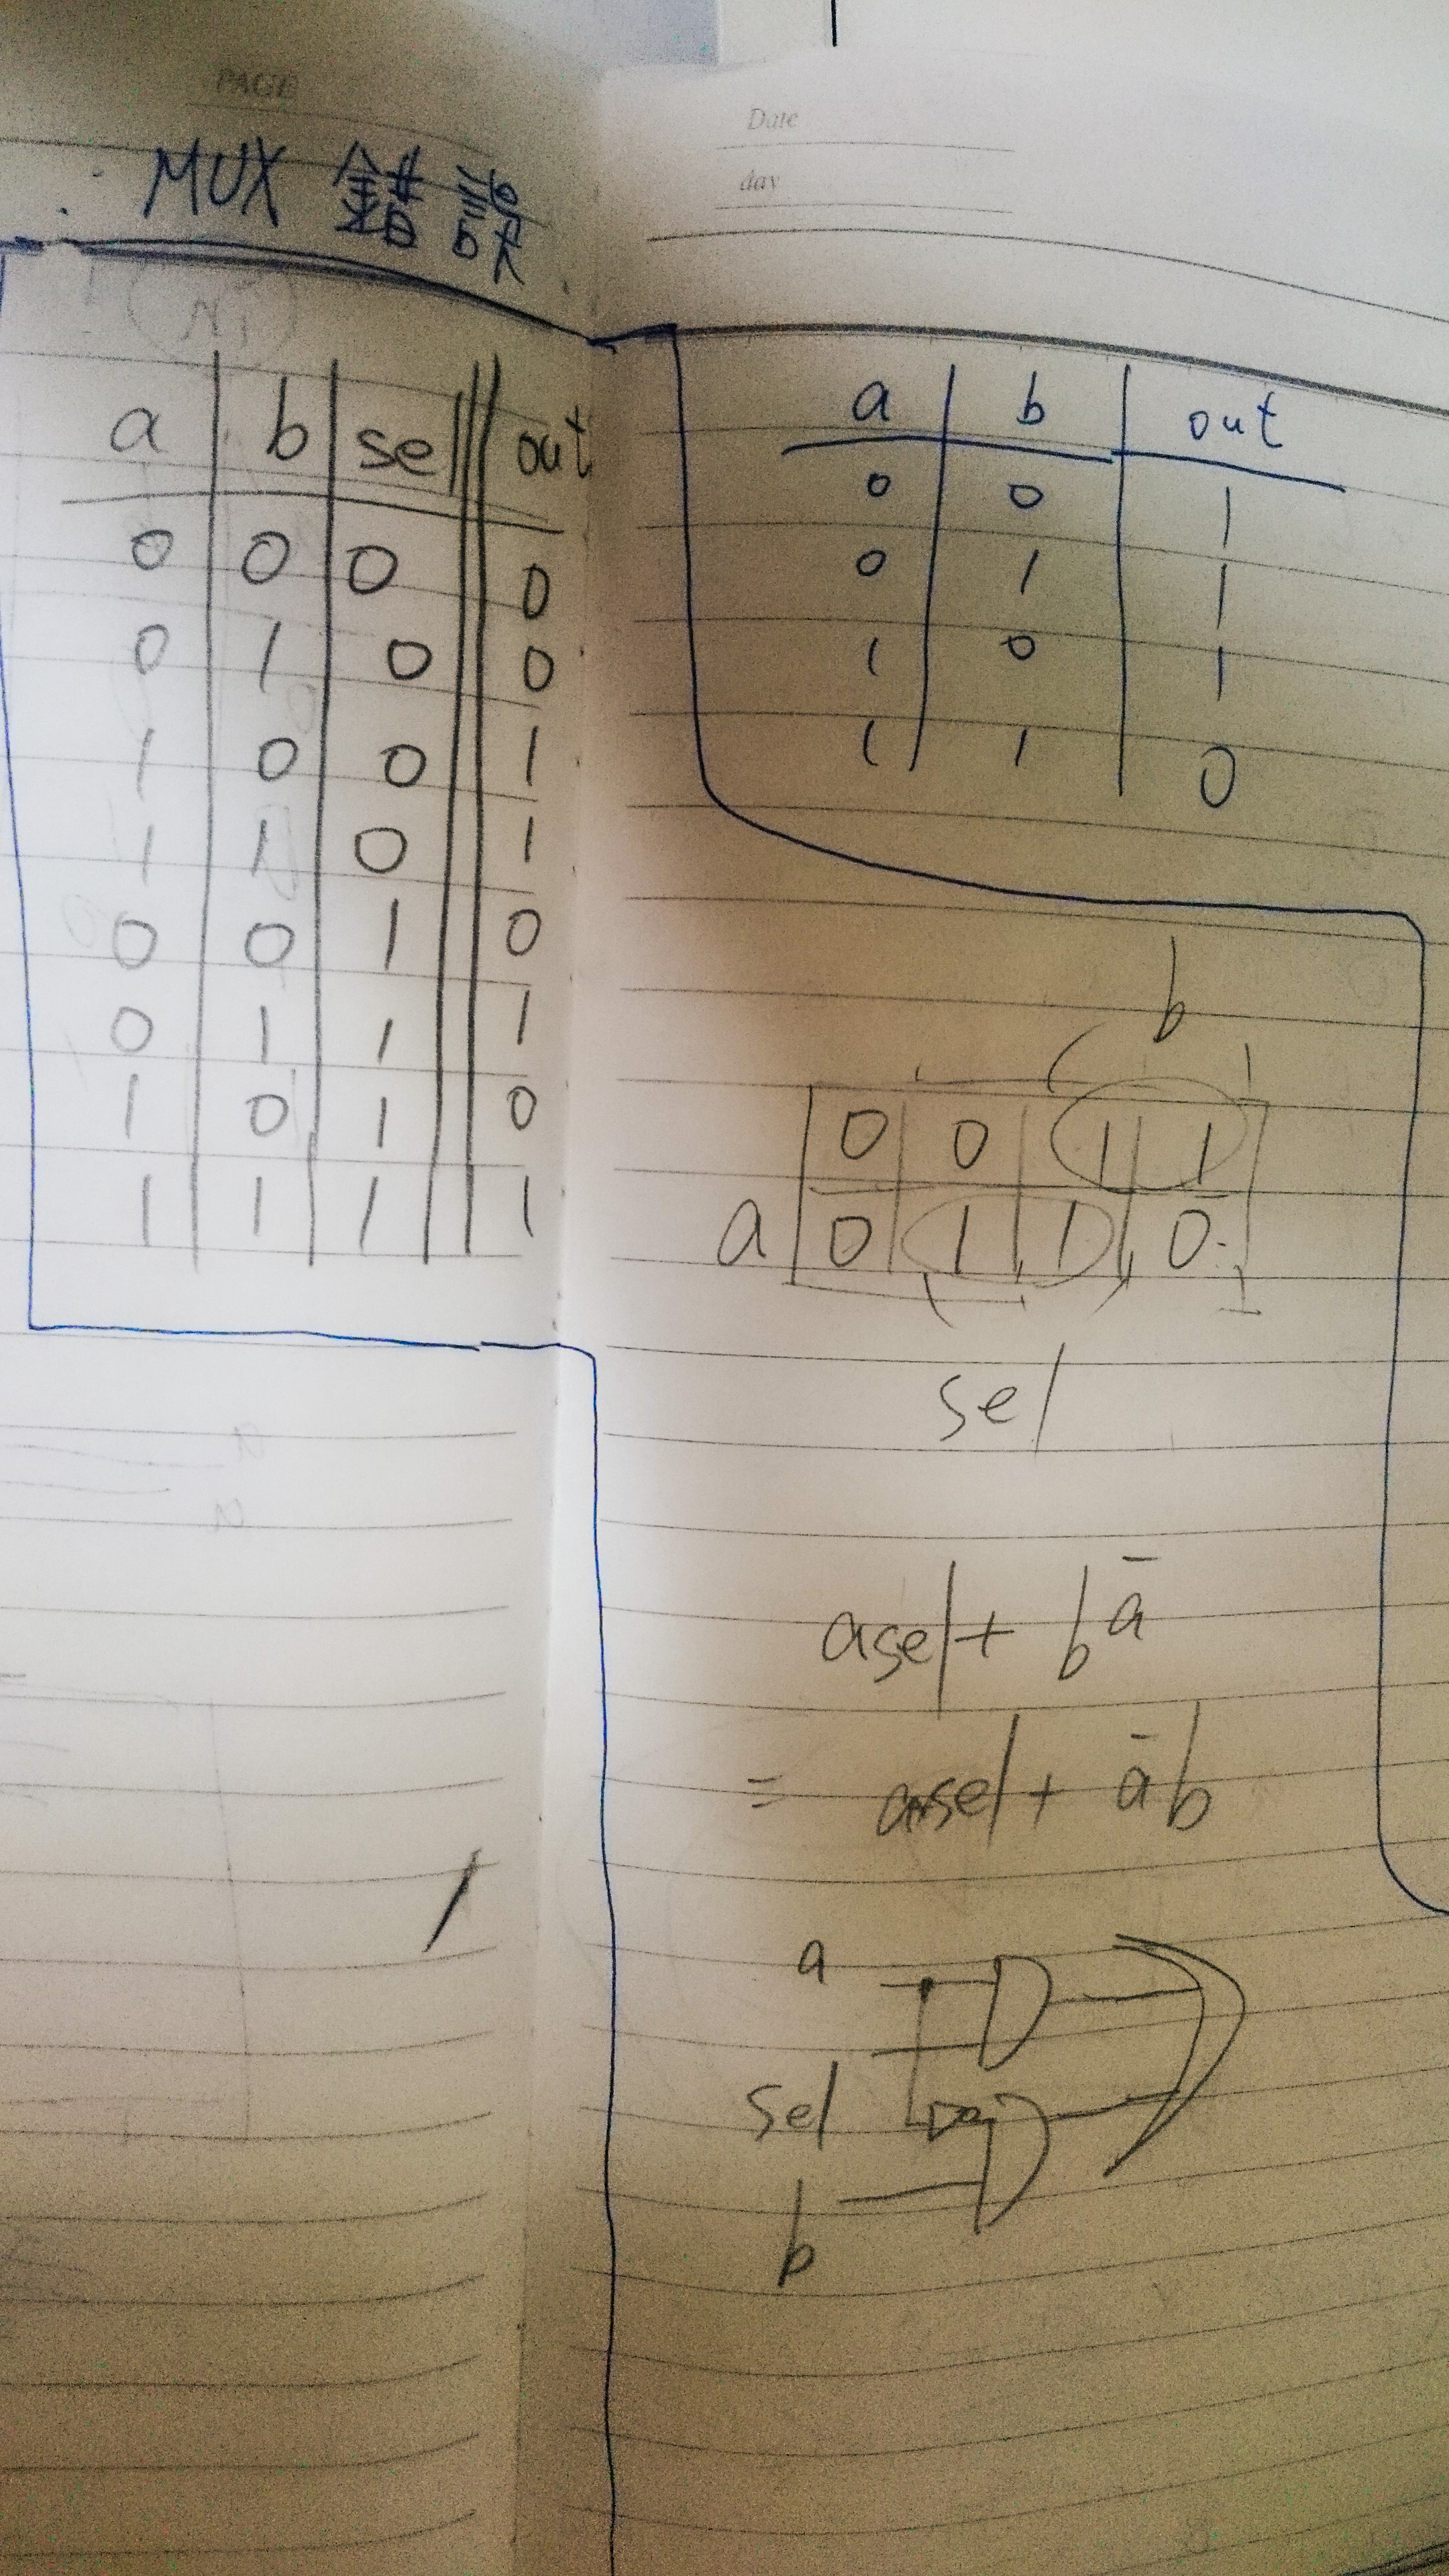 PAGE
MUX 錯誤.
a b sel out
0 0 0 0
0 1 0 0
1 0 0 1
1 1 0 1
0 0 1 0
0 1 1 1
1 0 1 0
1 1 1 1
Date
day
a b out
0 0 1
0 1 1
1 0 1
1 1 0
b
0 0 1 1
a 0 1 1 0
sel
asel + bā
= asel + āb
a
sel
b